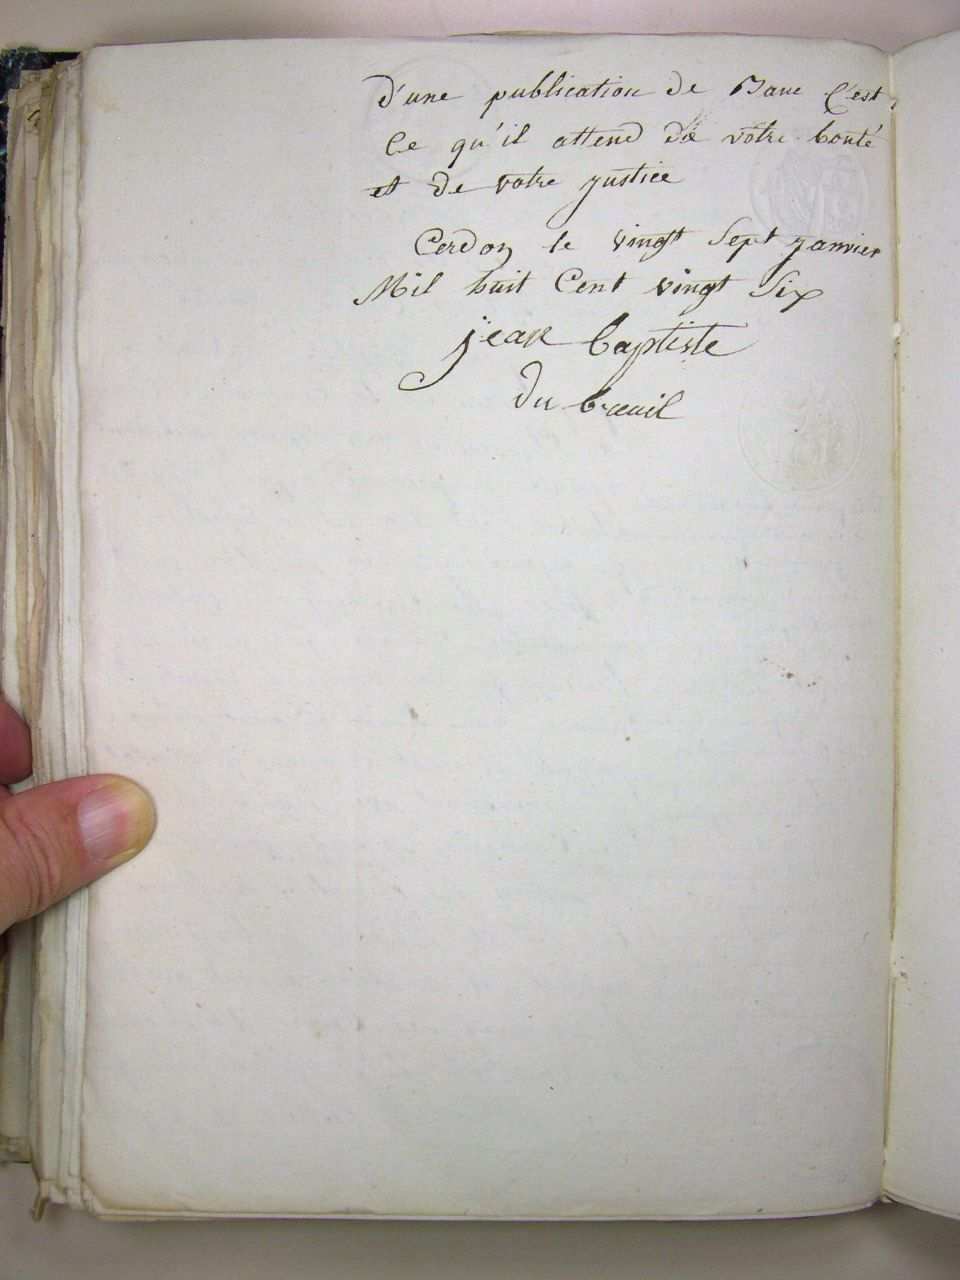 d'une publication de Banc C'est
Ce qu'il attend de votre bonté
et de votre justice
Cerdon le vingt Sept janvier
Mil huit Cent vingt Six
jean baptiste
du breuil